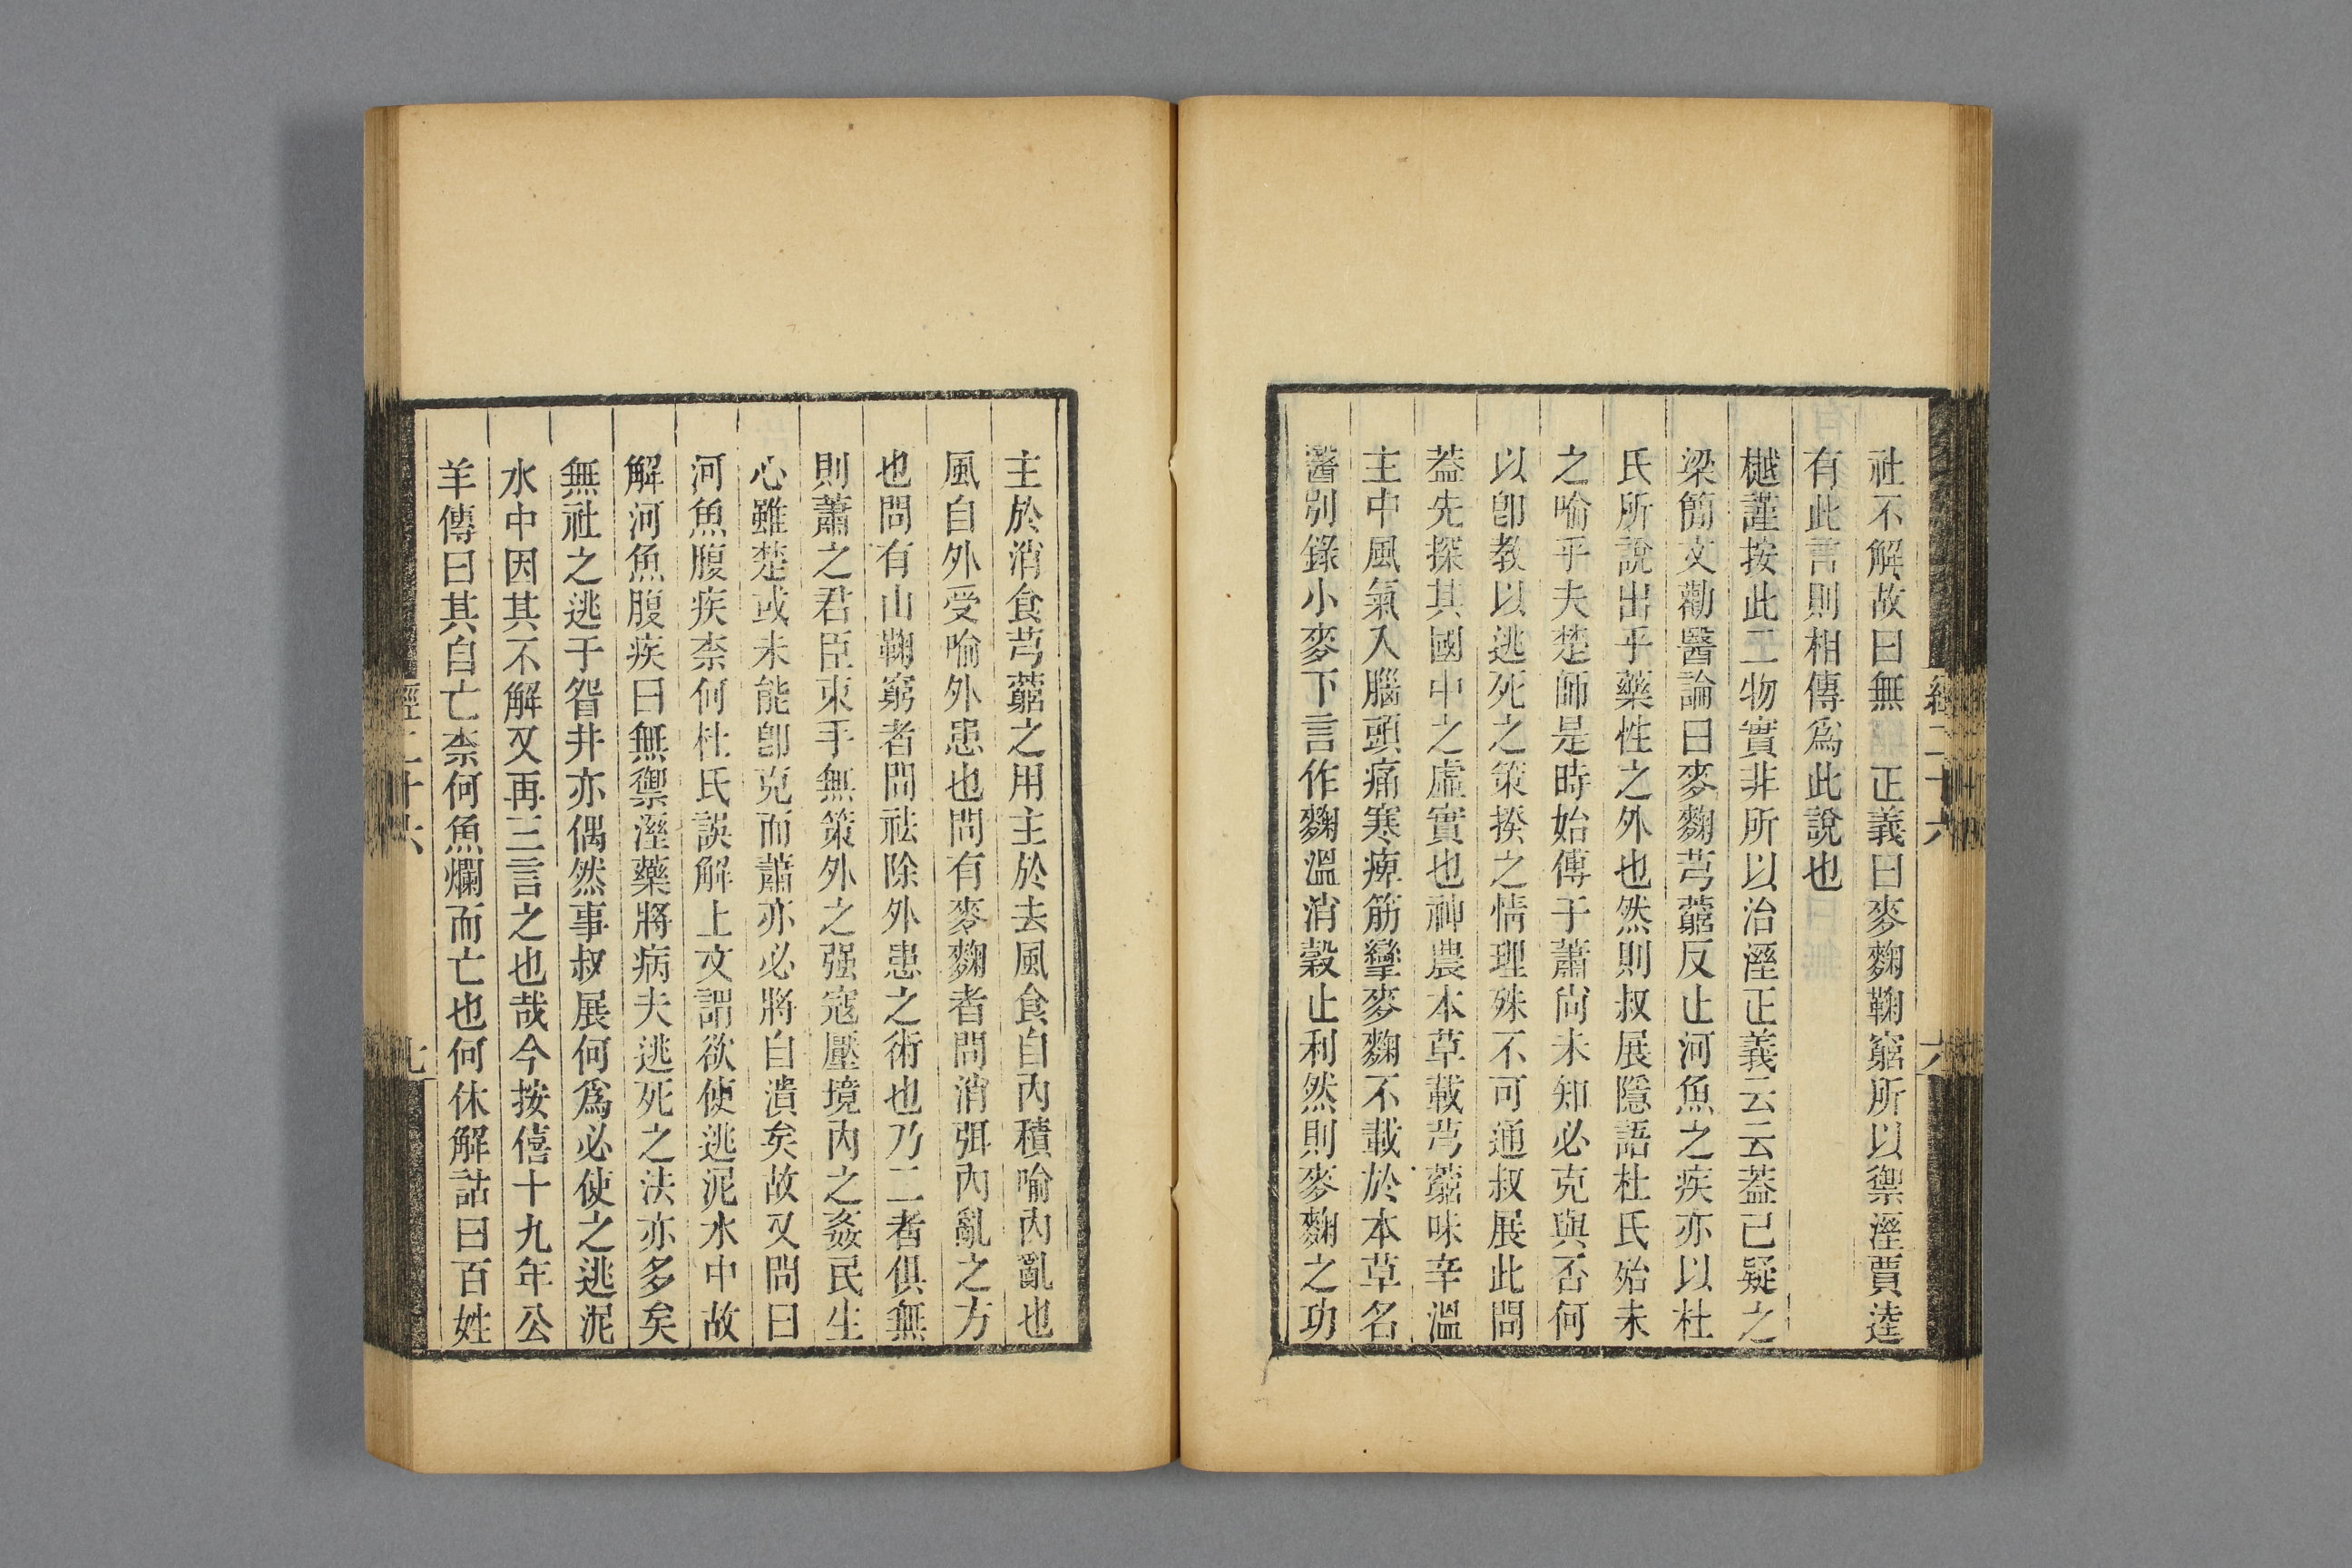 社不解故曰無　正義曰麥麴鞠窮所以禦溼賈逵
有此言則相傳爲此說也
樾謹按此二物實非所以治溼正義云云葢已疑之
梁簡文勸醫論曰麥麴芎藭反止河魚之疾亦以杜
氏所說出乎藥性之外也然則叔展隱語杜氏殆未
之喻乎夫楚師是時始傅于蕭尙未知必克與否何
以卽教以逃死之策揆之情理殊不可通叔展此問
葢先探其國中之虛實也神農本草載芎藭味辛溫
主中風氣入腦頭痛寒痺筋攣麥麴不載於本草名
醫別錄小麥下言作麴溫消穀止利然則麥麴之功
主於消食芎藭之用主於去風食自內積喻內亂也
風自外受喻外患也問有麥麴者問消弭內亂之方
也問有山鞠窮者問祛除外患之術也乃二者俱無
則蕭之君臣束手無策外之强寇壓境內之姦民生
心雖楚或未能卽克而蕭亦必將自潰矣故又問曰
河魚腹疾柰何杜氏誤解上文謂欲使逃泥水中故
解河魚腹疾曰無禦溼藥將病夫逃死之法亦多矣
無社之逃于眢井亦偶然事叔展何爲必使之逃泥
水中因其不解又再三言之也哉今按僖十九年公
羊傳曰其自亡柰何魚爛而亡也何休解詁曰百姓
經二十六
七